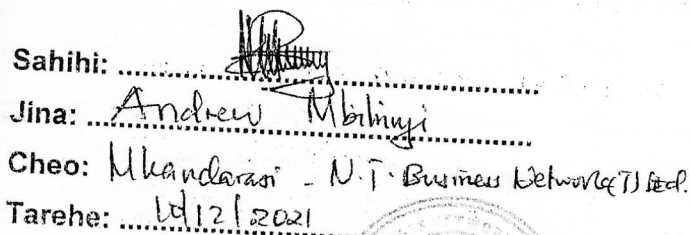 Sahihi:
Jina: Andrew Mbilinyi
Cheo: Mkandarasi - N.T. Business Network (T) Ltd.
Tarehe: 10/12/2021